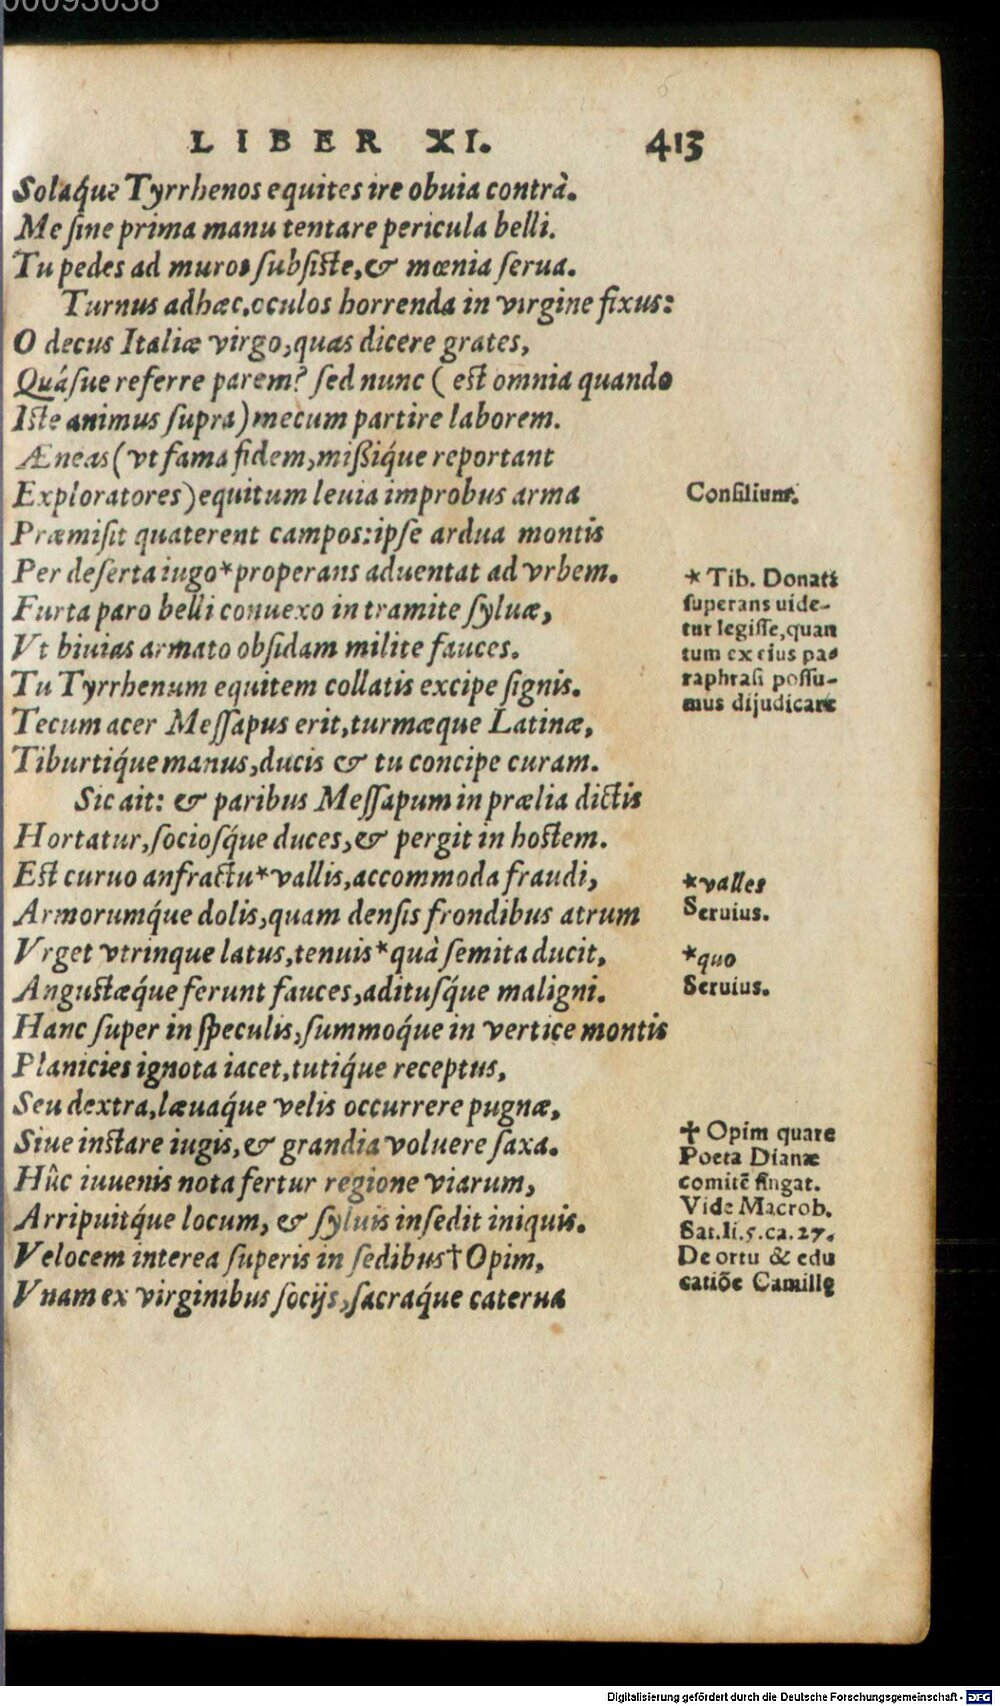 00093038
LIBER XI. 413
Solaq́ue Tyrrhenos equites ire obuia contrà.
Me ſine prima manu tentare pericula belli.
Tu pedes ad muros ſubſiſte, & mœnia ſerua.
Turnus ad hæc, oculos horrenda in virgine fixus:
O decus Italiæ virgo, quas dicere grates,
Quáſue referre parem? ſed nunc (eſt omnia quando
Iſte animus ſupra) mecum partire laborem.
Æneas (vt fama fidem, mißiq́ue reportant
Exploratores) equitum leuia improbus arma
Præmiſit quaterent campos: ipſe ardua montis
Per deſerta iugo * properans aduentat ad vrbem.
Furta paro belli conuexo in tramite ſyluæ,
Vt biuias armato obſidam milite fauces.
Tu Tyrrhenum equitem collatis excipe ſignis.
Tecum acer Meſſapus erit, turmæque Latinæ,
Tiburtiq́ue manus, ducis & tu concipe curam.
Sic ait: & paribus Meſſapum in prælia dictis
Hortatur, ſocioſq́ue duces, & pergit in hoſtem.
Eſt curuo anfractu * vallis, accommoda fraudi,
Armorumq́ue dolis, quam denſis frondibus atrum
Vrget vtrinque latus, tenuis * quà ſemita ducit,
Anguſtæq́ue ferunt fauces, adituſq́ue maligni.
Hanc ſuper in ſpeculis, ſummoq́ue in vertice montis
Planicies ignota iacet, tutiq́ue receptus,
Seu dextra, læuaq́ue velis occurrere pugnæ,
Siue inſtare iugis, & grandia voluere ſaxa.
Hûc iuuenis nota fertur regione viarum,
Arripuitq́ue locum, & ſyluis inſedit iniquis.
Velocem interea ſuperis in ſedibus † Opim,
Vnam ex virginibus ſocijs, ſacraq́ue caterua
Conſilium.
* Tib. Donati
ſuperans uide-
tur legiſſe, quan
tum ex eius pa-
raphraſi poſſu-
mus dijudicare
* valles
Seruius.
* quo
Seruius.
† Opim quare
Poeta Dianæ
comitē fingat.
Vide Macrob.
Sat. li. 5. ca. 27.
De ortu & edu
catiōe Camillę
Digitalisierung gefördert durch die Deutsche Forschungsgemeinschaft - DFG